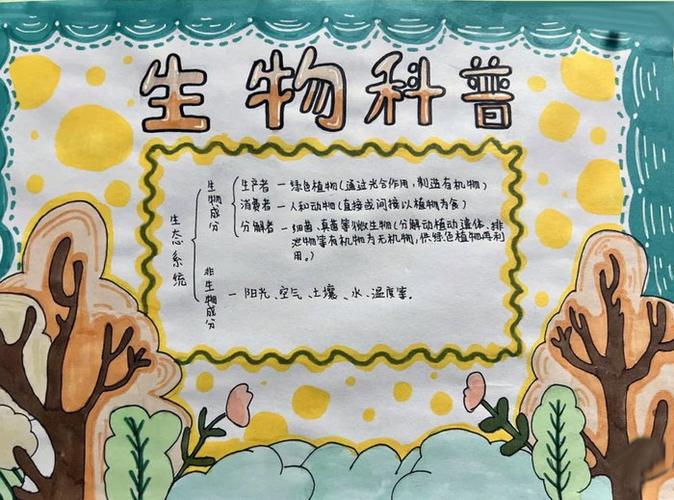 生物科普
生态系统
生物成分
生产者 — 绿色植物(通过光合作用,制造有机物)
消费者 — 人和动物(直接或间接以植物为食)
分解者 — 细菌、真菌等微生物(分解动植动遗体、排
泄物等有机物为无机物,供绿色植物再利
用。)
非生物成分
— 阳光、空气、土壤、水、温度等。